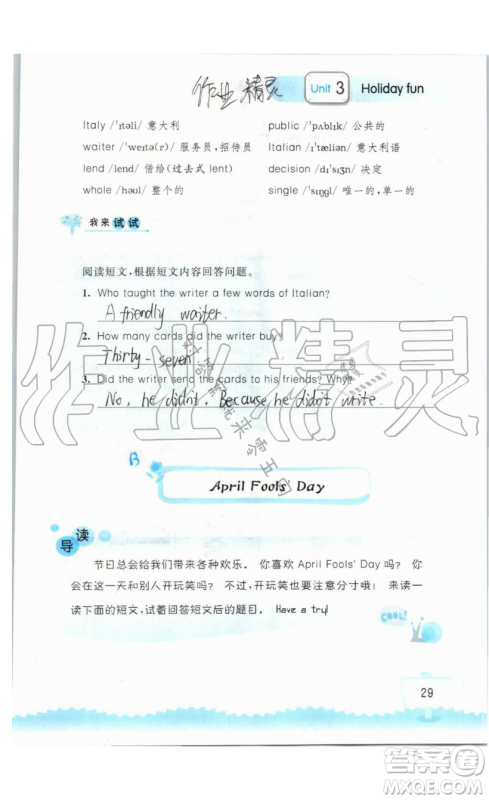 作业精灵 Unit 3 Holiday fun
Italy /ˈɪtəli/ 意大利 public /ˈpʌblɪk/ 公共的
waiter /ˈweɪtə(r)/ 服务员,招待员 Italian /ɪˈtæliən/ 意大利语
lend /lend/ 借给(过去式 lent) decision /dɪˈsɪʒn/ 决定
whole /həʊl/ 整个的 single /ˈsɪŋɡl/ 唯一的,单一的
我来试试
阅读短文,根据短文内容回答问题。
1. Who taught the writer a few words of Italian?
A friendly waiter.
2. How many cards did the writer buy?
Thirty-seven
3. Did the writer send the cards to his friends? Why?
No, he didn't, Because he didn't write.
作业精灵
对答案就来零五网
B
April Fools' Day
导读
节日总会给我们带来各种欢乐。 你喜欢 April Fools' Day 吗? 你
能在这一天和别人开玩笑吗? 不过,开玩笑也要注意分寸哦! 来读一
读下面的短文,试着回答短文后的题目。 Have a try!
COOL!
29
答案圈
MXQE.COM